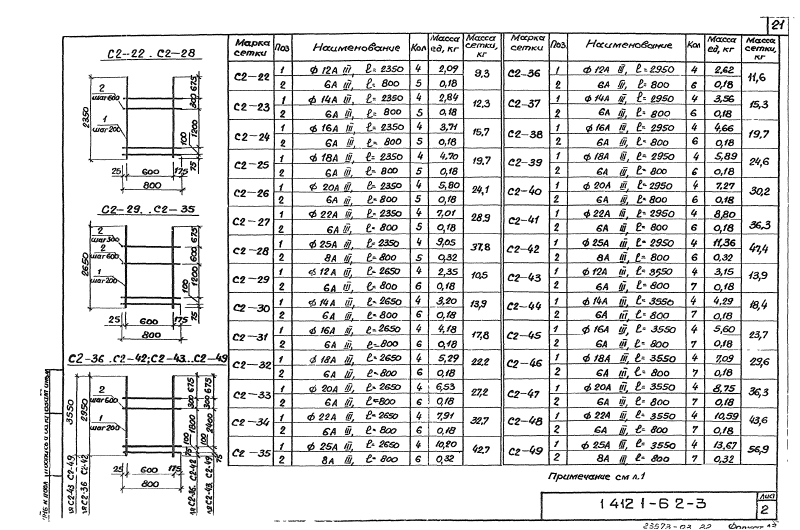 21
С2-22. .С2-28
2
шаг600
1
шаг200
2350
300 675
100 1200
75
25 600 175
800
С2-29. .С2-35
2
шаг300
2
шаг600
1
шаг200
2650
675
600
100 1200
75
25 600 175
800
С2-36 .С2-42; С2-43...С2-49
2
шаг600
1
шаг200
3550
2950
300 675
300 675
1800
2400
100
100
75
75
25 600 175
800
Марка сетки Поз. Наименование Кол Масса ед, кг Масса сетки, кг
С2-22 1 ф 12А III, ℓ=2350 4 2,09 9,3
2 6А III, ℓ=800 5 0,18
С2-23 1 ф 14А III, ℓ=2350 4 2,84 12,3
2 6А III, ℓ=800 5 0,18
С2-24 1 ф 16А III, ℓ=2350 4 3,71 15,7
2 6А III, ℓ=800 5 0,18
С2-25 1 ф 18А III, ℓ=2350 4 4,70 19,7
2 6А III, ℓ=800 5 0,18
С2-26 1 ф 20А III, ℓ=2350 4 5,80 24,1
2 6А III, ℓ=800 5 0,18
С2-27 1 ф 22А III, ℓ=2350 4 7,01 28,9
2 6А III, ℓ=800 5 0,18
С2-28 1 ф 25А III, ℓ=2350 4 9,05 37,8
2 8А III, ℓ=800 5 0,32
С2-29 1 ф 12А III, ℓ=2650 4 2,35 10,5
2 6А III, ℓ=800 6 0,18
С2-30 1 ф 14А III, ℓ=2650 4 3,20 13,9
2 6А III, ℓ=800 6 0,18
С2-31 1 ф 16А III, ℓ=2650 4 4,18 17,8
2 6А III, ℓ=800 6 0,18
С2-32 1 ф 18А III, ℓ=2650 4 5,29 22,2
2 6А III, ℓ=800 6 0,18
С2-33 1 ф 20А III, ℓ=2650 4 6,53 27,2
2 6А III, ℓ=800 6 0,18
С2-34 1 ф 22А III, ℓ=2650 4 7,91 32,7
2 6А III, ℓ=800 6 0,18
С2-35 1 ф 25А III, ℓ=2650 4 10,20 42,7
2 8А III, ℓ=800 6 0,32
Марка сетки Поз. Наименование Кол Масса ед, кг Масса сетки, кг
С2-36 1 ф 12А III, ℓ=2950 4 2,62 11,6
2 6А III, ℓ=800 6 0,18
С2-37 1 ф 14А III, ℓ=2950 4 3,56 15,3
2 6А III, ℓ=800 6 0,18
С2-38 1 ф 16А III, ℓ=2950 4 4,66 19,7
2 6А III, ℓ=800 6 0,18
С2-39 1 ф 18А III, ℓ=2950 4 5,89 24,6
2 6А III, ℓ=800 6 0,18
С2-40 1 ф 20А III, ℓ=2950 4 7,27 30,2
2 6А III, ℓ=800 6 0,18
С2-41 1 ф 22А III, ℓ=2950 4 8,80 36,3
2 6А III, ℓ=800 6 0,18
С2-42 1 ф 25А III, ℓ=2950 4 11,36 47,4
2 8А III, ℓ=800 6 0,32
С2-43 1 ф 12А III, ℓ=3550 4 3,15 13,9
2 6А III, ℓ=800 7 0,18
С2-44 1 ф 14А III, ℓ=3550 4 4,29 18,4
2 6А III, ℓ=800 7 0,18
С2-45 1 ф 16А III, ℓ=3550 4 5,60 23,7
2 6А III, ℓ=800 7 0,18
С2-46 1 ф 18А III, ℓ=3550 4 7,09 29,6
2 6А III, ℓ=800 7 0,18
С2-47 1 ф 20А III, ℓ=3550 4 8,75 36,3
2 6А III, ℓ=800 7 0,18
С2-48 1 ф 22А III, ℓ=3550 4 10,59 43,6
2 6А III, ℓ=800 7 0,18
С2-49 1 ф 25А III, ℓ=3550 4 13,67 56,9
2 8А III, ℓ=800 7 0,32
Примечание см л.1
1 412 1-6 2-3
Лист
2
23573-03 22 Формат